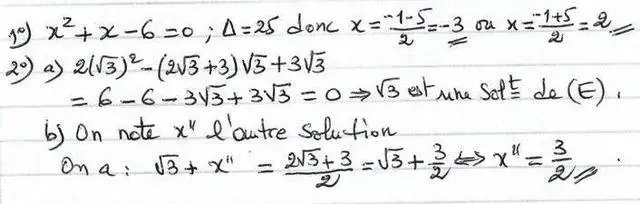 1°) x² + x - 6 = 0 ; Δ = 25 donc x = (-1-5)/2 = -3 ou x = (-1+5)/2 = 2
2°) a) 2(√3)² - (2√3 + 3)√3 + 3√3
= 6 - 6 - 3√3 + 3√3 = 0 ⇒ √3 est une Solt de (E).
b) On note x" l'autre solution
On a : √3 + x" = (2√3 + 3)/2 = √3 + 3/2 ⇔ x" = 3/2